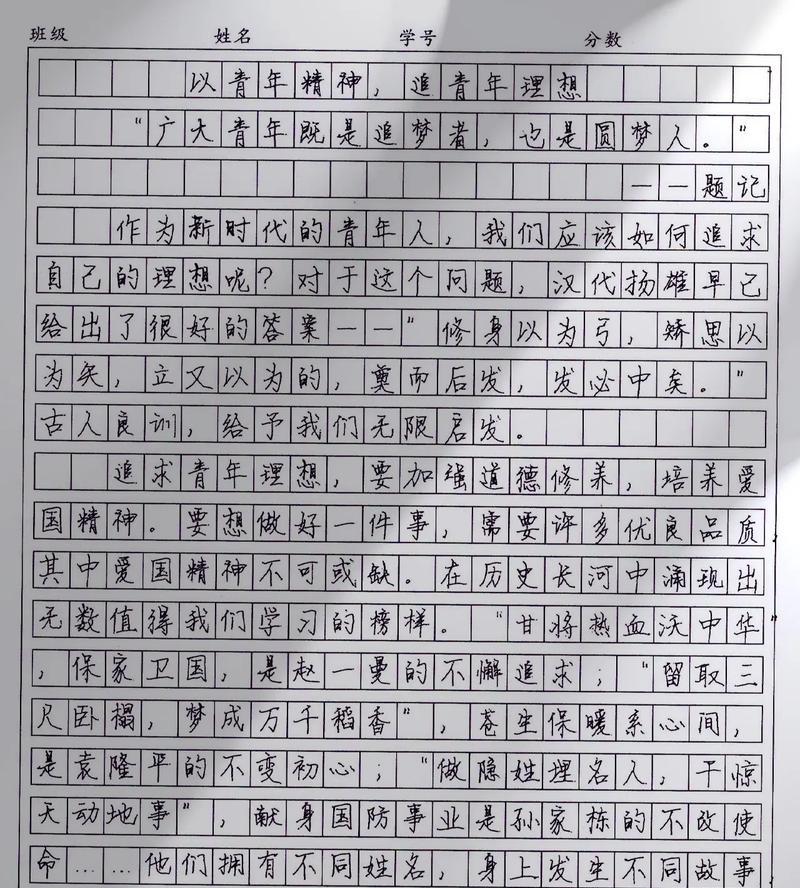 班级 姓名 学号 分数
以青年精神，追青年理想
“广大青年既是追梦者，也是圆梦人。”
——题记
作为新时代的青年人，我们应该如何追求
自己的理想呢？对于这个问题，汉代扬雄早已
给出了很好的答案——“修身以为弓，矫思以
为矢，立义以为的，奠而后发，发必中矣。”
古人良训，给予我们无限启发。
追求青年理想，要加强道德修养，培养爱
国精神。要想做好一件事，需要许多优良品质，
其中爱国精神不可或缺。在历史长河中涌现出
无数值得我们学习的榜样。“甘将热血沃中华”
，保家卫国，是赵一曼的不懈追求；“留取三
尺卧榻，梦成万千稻香”，苍生保暖系心间，
是袁隆平的不变初心；“做隐姓埋名人，干惊
天动地事”，献身国防事业是孙家栋的不改使
命……他们拥有不同姓名，身上发生不同故事